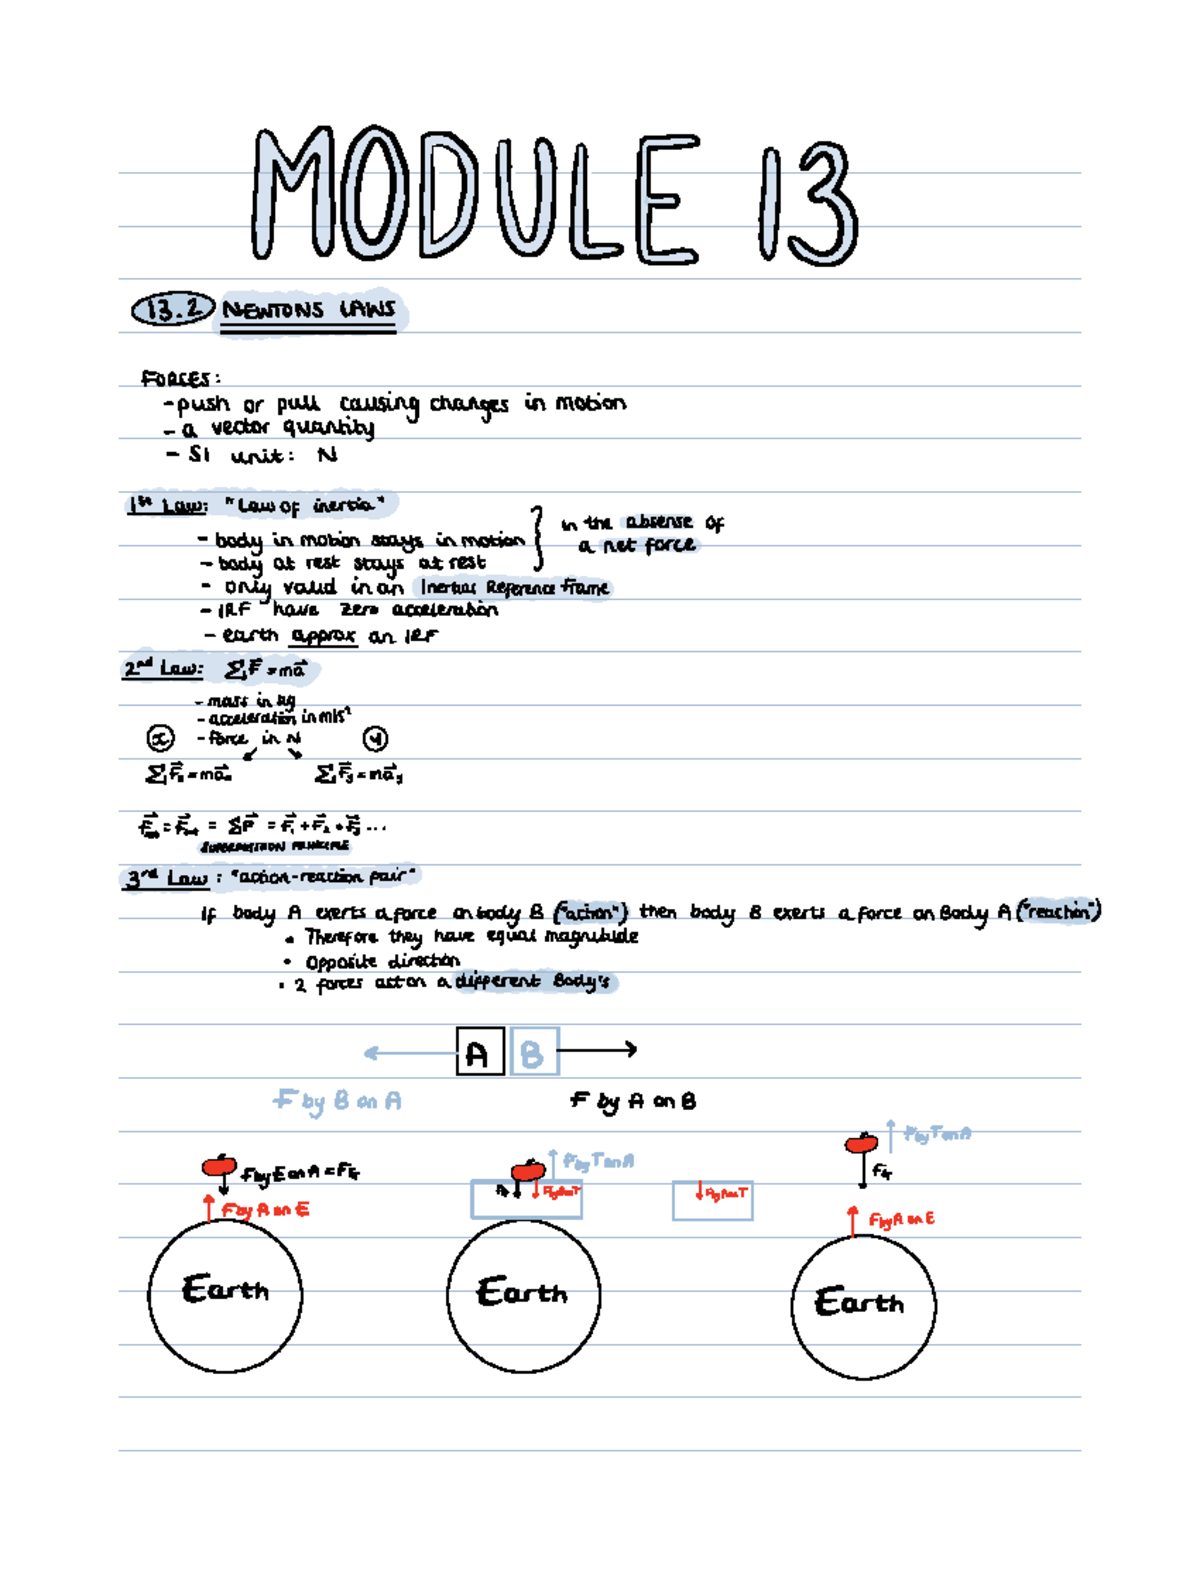 MODULE 13
13.2 NEWTONS LAWS
FORCES:
- push or pull causing changes in motion
- a vector quantity
- SI unit: N
1st Law: "Law of inertia"
- body in motion stays in motion } in the absense of
- body at rest stays at rest a net force
- only valid in an Inertial Reference Frame
- IRF have zero acceleration
- earth approx an IRF
2nd Law: ΣF⃗ = ma⃗
- mass in kg
- acceleration in m/s²
- force in N
x y
ΣF⃗x = ma⃗x ΣF⃗y = ma⃗y
F⃗net = ΣF⃗ = F⃗1 + F⃗2 + F⃗3 ...
SUPERPOSITION PRINCIPLE
3rd Law: "action-reaction pair"
If body A exerts a force on body B ("action") then body B exerts a force on Body A ("reaction")
• Therefore they have equal magnitude
• Opposite direction
• 2 forces act on a different Body's
A B
F by B on A F by A on B
F by T on A
F by E on A = FG F by T on A FG
F by A on T F by A on T
F by A on E F by A on E
Earth Earth Earth